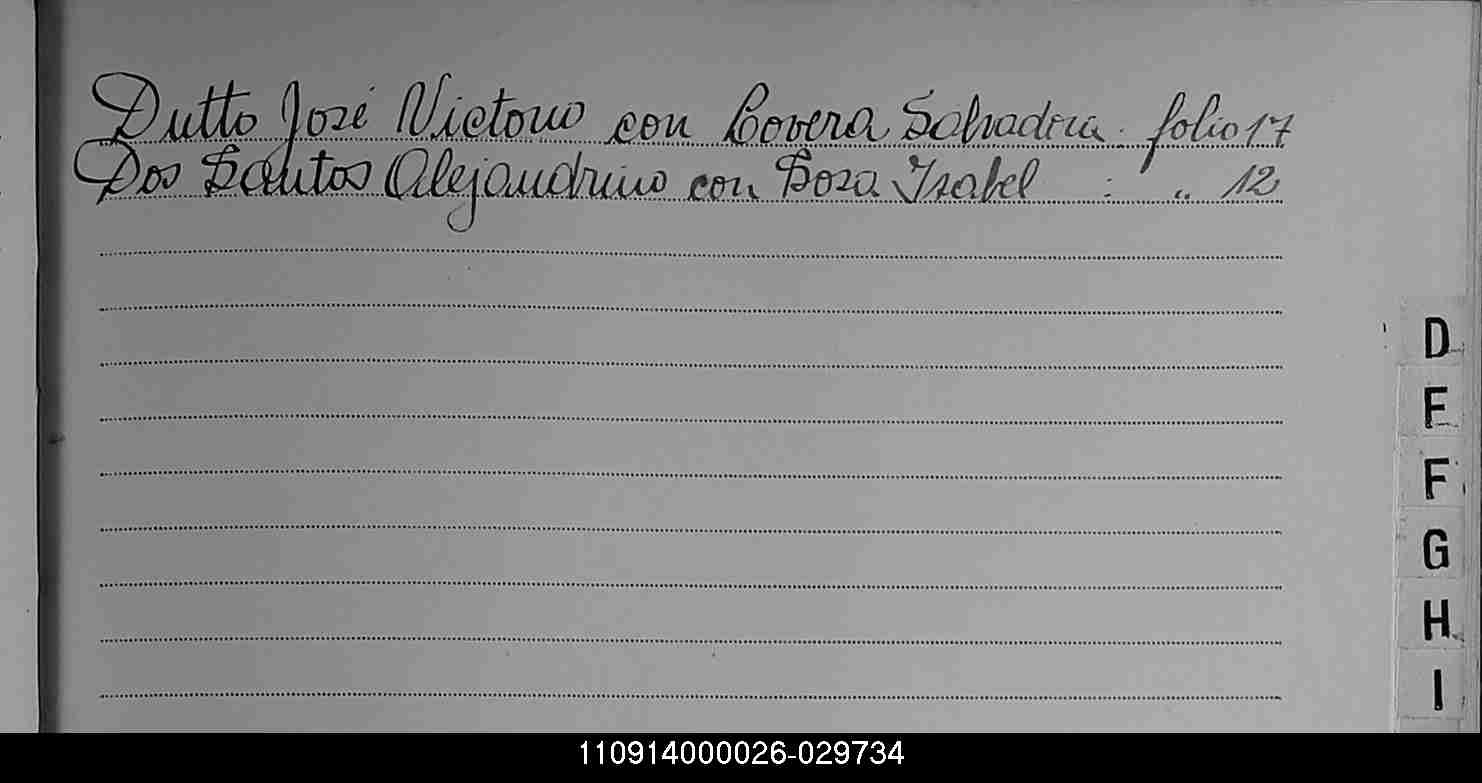 Dutto José Victorio con Lovera Salvadora. folio 17
Dos Santos Alejandrino con Sosa Isabel : " 12
D
E
F
G
H
I
110914000026-029734